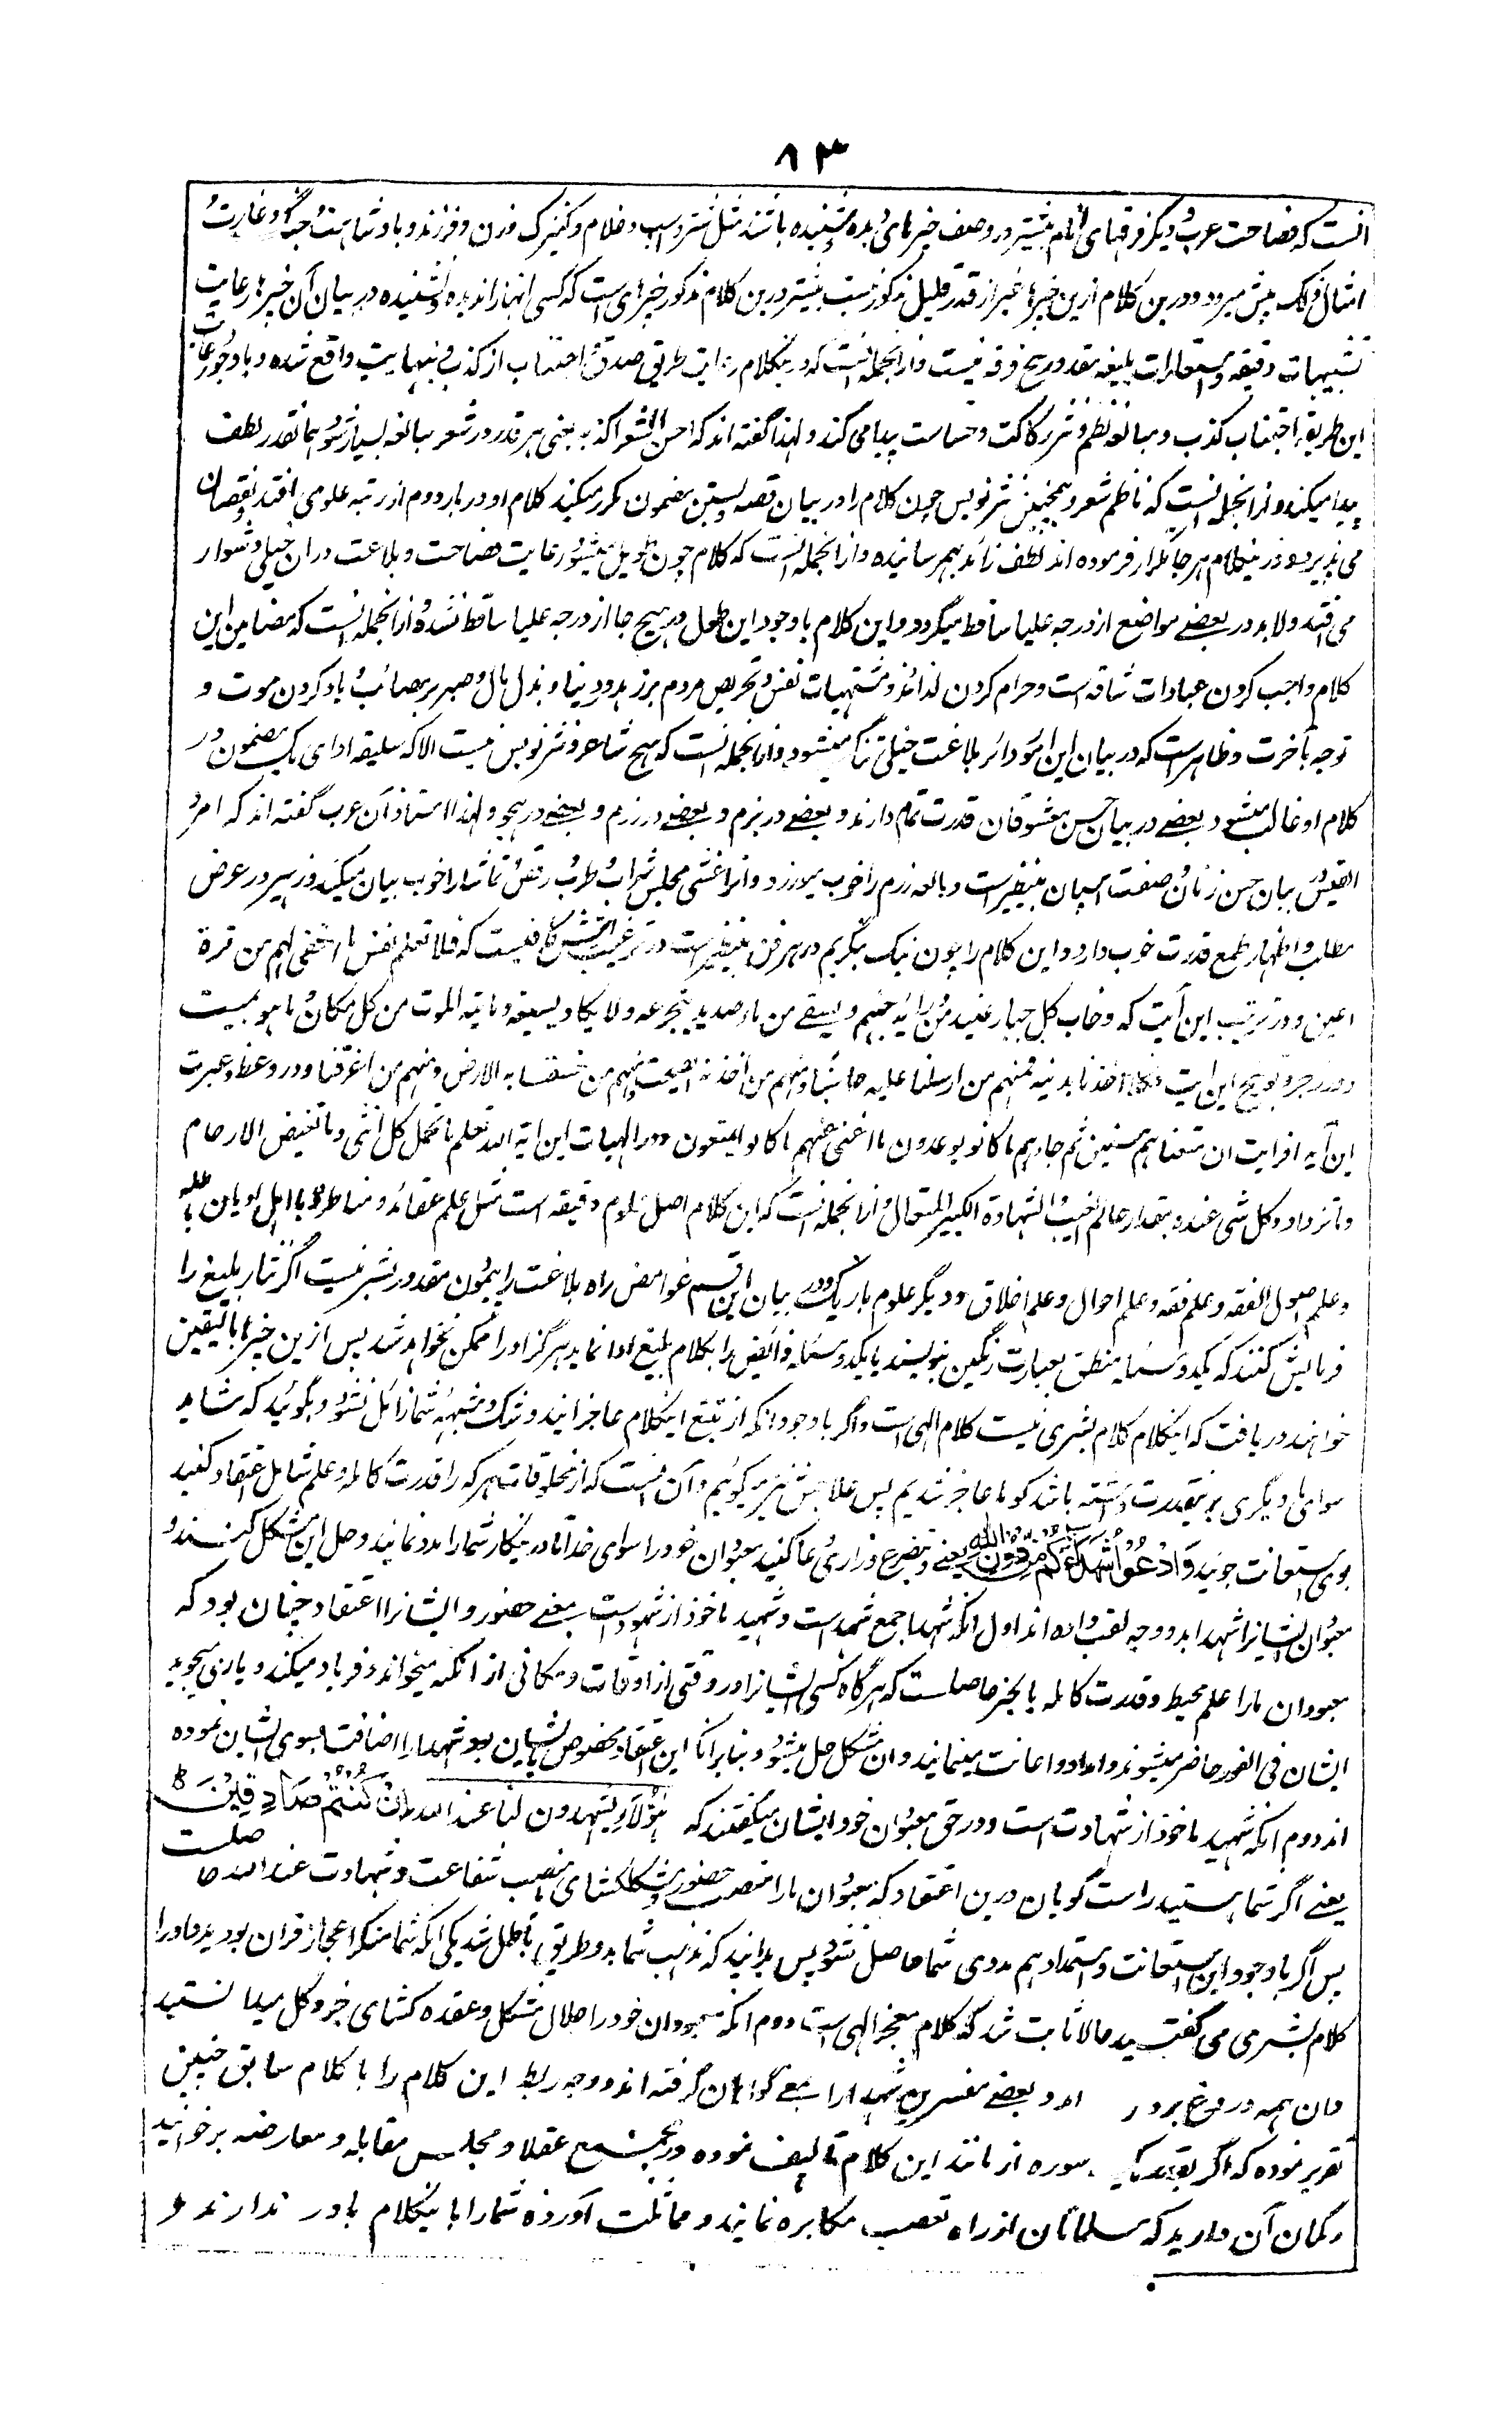 ۸۳
انست که فصاحت عرب و دیگر فرقهای انام بیشتر در وصف چیزهای دیده و شنیده باشند مثل شتر و اسپ و غلام و کنیزک و زن و فرزند و بادشاهت و جنگ و غارت و
امثال ذلک پیش میرود و درین کلام ازین چیزها غیر از قدر قلیل مذکور نیست بیشتر درین کلام مذکور چیزهای است که کسی انها را ندیده و نشنیده در بیان آن چیزها رعایت
تشبیهات دقیقه و استعارات بلیغه مقدور هیچ فرقه نیست و ازانجمله انست که درینکلام رعایت طریق صدق و اجتناب از کذب بنهایت واقع شده و باوجود رعایت
این طریقه اجتناب کذب و مبالغه نظم و نثر رکاکت و خساست پیدا می کند و لهذا گفته اند که احسن الشعر اکذبه یعنی هر قدر در شعر مبالغه بسیار شود همانقدر لطف
پیدا میکند و ازانجمله انست که ناظم شعر و همچنین نثر نویس چون کلام را در بیان قصه و بستن مضمون مکرر میکند کلام او در بار دوم از رتبه علو می افتد و نقصان
می پذیرد و درینکلام هر جا تکرار فرموده اند لطف زائد بهم رسانیده و ازانجمله انست که کلام چون طویل میشود رعایت فصاحت و بلاغت دران خیلی دشوار
می افتد و لابد در بعضے مواضع از درجه علیا ساقط میگردد و این کلام باوجود این طول در هیچ جا از درجه علیا ساقط نشده و ازانجمله انست که مضامین این
کلام واجب کردن عبادات شاقه است و حرام کردن لذائذ و مشتهیات نفس و تحریص مردم بر زهد دنیا و بذل مال و صبر بر مصائب و یاد کردن موت و
توجه بآخرت و ظاهر است که در بیان این امور دائره بلاغت خیلی تنگ میشود و ازانجمله انست که هیچ شاعر و نثر نویس نیست الا که سلیقه ادای یک مضمون در
کلام او غالب میشود بعضے در بیان حسن معشوقان قدرت تمام دارند و بعضے در بزم و بعضے در رزم و بعضے در هجو و لهذا استاذان عرب گفته اند که امرؤ
القیس در بیان حسن زنان و صفت اسپان بینظیر است و نابغه رزم را خوب میورزد و اعشی مجلس شراب و طرب و رقص و تماشا را خوب بیان میکند و زهیر در عرض
مطلب و اظهار طمع قدرت خوب دارد و این کلام را چون نیک بنگریم در هر فن بینظیر است در ترغیب این ایت کافیست که فلا تعلم نفس ما اخفی لهم من قرة
اعین و در ترهیب این آیت که و خاب کل جبار عنید من ورائه جهنم و یسقے من ماء صدید یتجرعه ولا یکاد یسیغه و یاتیه الموت من کل مکان و ما هو بمیت
و در زجر و توبیخ این ایت فکلا اخذنا بذنبه فمنهم من ارسلنا علیه حاصبا و منهم من اخذته الصیحة و منهم من خسفنا به الارض و منهم من اغرقنا و در وعظ و عبرت
این آیه افرایت ان متعناهم سنین ثم جاءهم ما کانوا یوعدون ما اغنی عنهم ما کانوا یمتعون و در الهیات این ایه الله یعلم ما تحمل کل انثی و ما تغیض الارحام
و ما تزداد و کل شی عنده بمقدار عالم الغیب و الشهادة الکبیر المتعال و ازانجمله انست که این کلام اصل علوم دقیقه است مثل علم عقائد و مناظره با اهل ادیان باطله
و علم اصول الفقه و علم فقه و علم احوال و علم اخلاق و دیگر علوم باریک و در بیان این قسم غوامض راه بلاغت را پیمودن مقدور بشر نیست اگر نثار بلیغ را
فرمایش کنند که یکدو مسئله منطق بعبارت رنگین بنویسند یا یکدو مسئله فرائض را بکلام بلیغ ادا نماید هرگز او را ممکن نخواهد شد پس ازین چیزها بالیقین
خواهند دریافت که اینکلام کلام بشری نیست کلام الهی است و اگر باوجود انکه از تتبع اینکلام عاجزاند و شک و شبههٔ شما زائل نشود و بگوئید که شاید
سوای ما دیگری برینقدرت داشته باشد گو ما عاجز شدیم پس علاجش نیز میگوئیم و آن اینست که از مخلوقات هر که را قدرت کامله و علم شامل اعتقاد کنید
بوی استعانت جوئید وَادْعُوْا شُهَدَآءَكُمْ مِنْ دُوْنِ اللّٰهِ یعنے و بتضرع و زاری دعا کنید معبودان خود را سوای خدا تا درینکار شما را مدد نمایند و حل این مشکل کنند و
معبودان ایشانرا شهدا بدو وجه لقب داده اند اول انکه شهدا جمع شهید است و شهید ماخوذ از شهود است بمعنے حضور و ایشانرا اعتقاد چنان بود که
معبودان ما را علم محیط و قدرت کامله بالجزم حاصلست که هرگاه کسی ایشانرا در وقتی از اوقات و مکانی از امکنه میخواند و فریاد میکند و یاری میجوید
ایشان فی الفور حاضر میشوند و امداد و اعانت مینمایند و ان مشکل حل میشود و بنابر انکه این اعتقاد مخصوص بایشان بود شهدا را اضافت بسوی ایشان نموده
اند دوم انکه شهید ماخوذ از شهادت است و در حق معبودان خود ایشان میگفتند که هؤلاء یشهدون لنا عند الله اِنْ كُنْتُمْ صَادِقِيْنَ
یعنے اگر شما هستید راست گویان درین اعتقاد که معبودان ما را منصب حضور و مشکلکشای و منصب شفاعت و شهادت عند الله حاصلست
پس اگر باوجود این استعانت و استمداد هم مدعی شما حاصل نشود پس بدانید که مذهب شما بدو طریق باطل شد یکی انکه شما منکر اعجاز قران بودید و او را
کلام بشری می گفتید حالا ثابت شد که کلام معجز الهی است دوم انکه معبودان خود را حلال مشکل و عقده کشای جز و کل میدانستید
وان همه دروغ برد و بعضے مفسرین شهدا را بمعنے گواهان گرفته اند و وجه ربط این کلام را با کلام سابق چنین
تقریر نموده که اگر بقدر یک سوره از مانند این کلام تالیف نموده در مجمع عقلا و مجلس مقابله و معارضه بر خوانید
و گمان آن دارید که مسلمانان از راه تعصب مکابره نمایند و مماثلت آورده شما را باینکلام باور ندارند و